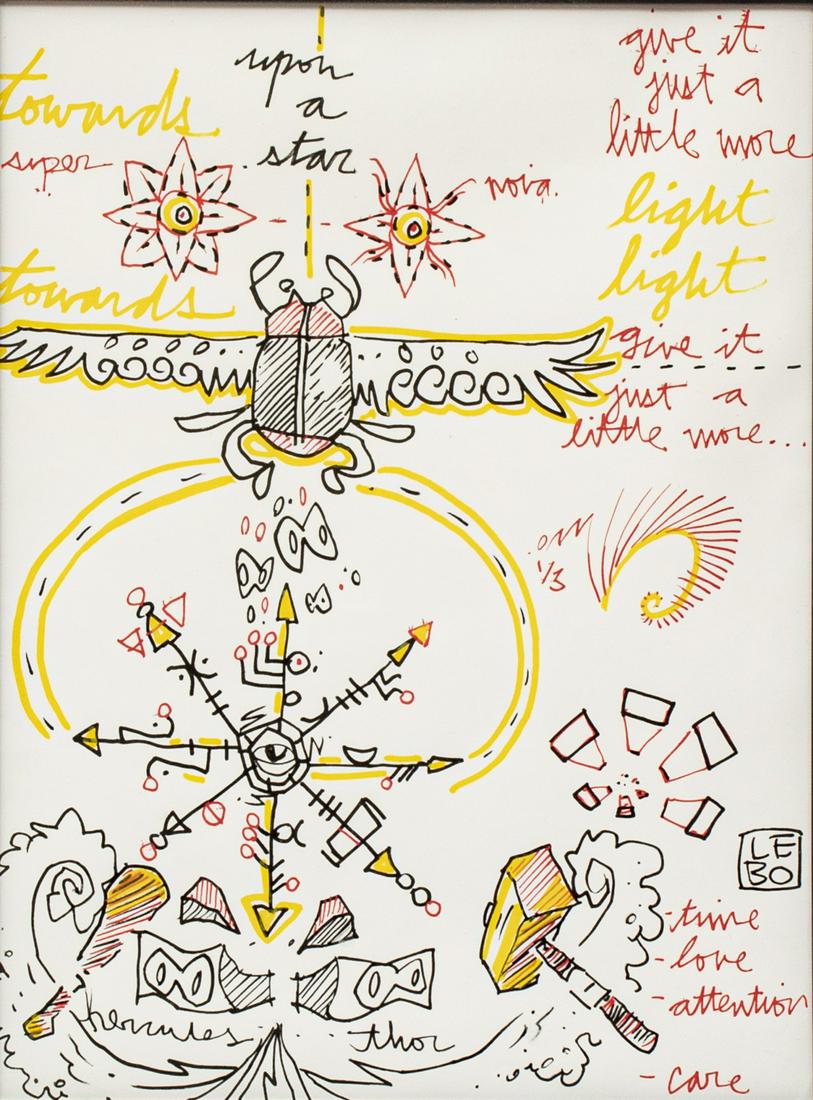 towards
upon
a
star
give it
just a
little more
super
nova.
light
light
towards
give it
just a
little more...
1/3
LE
BO
- time
- love
- attention
- care
hercules
thor